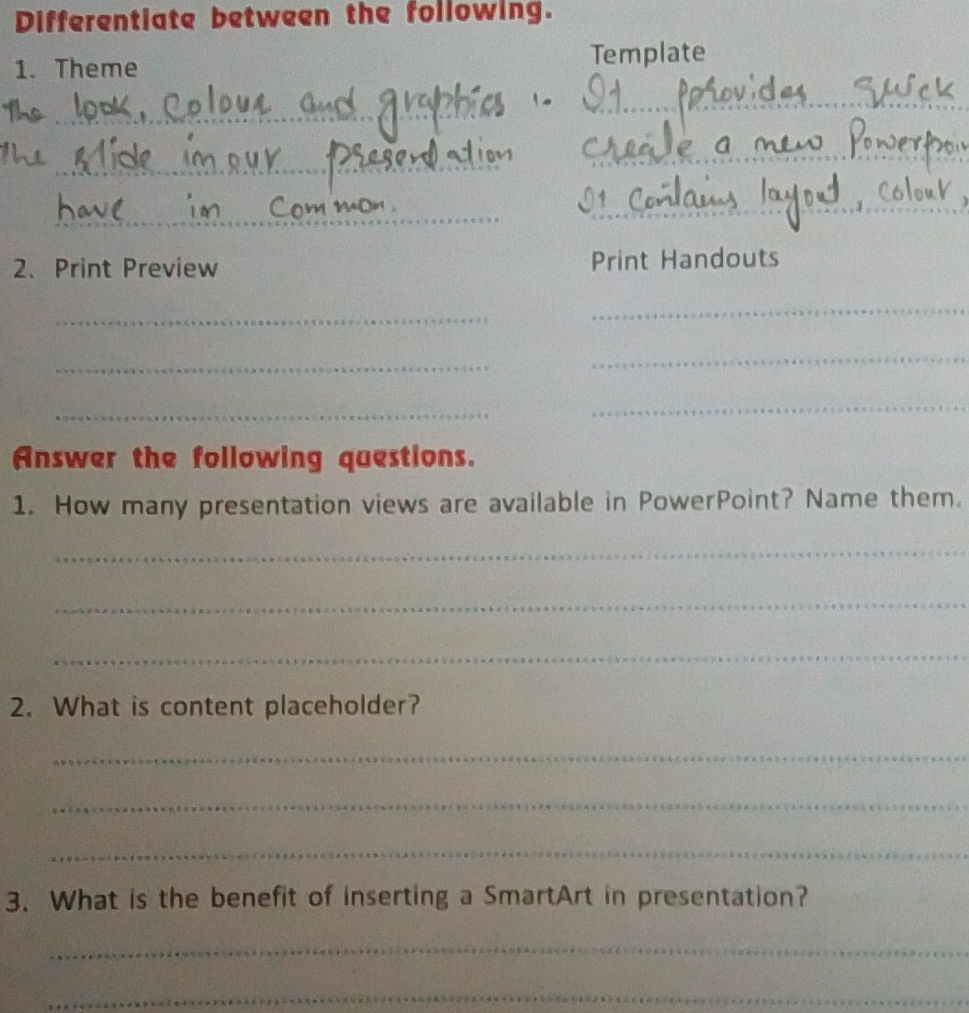 Differentiate between the following.
1. Theme
Template
The look, Colour and graphics
the slide in our presendation
have in Common.
1. It provides quick
create a new Powerpoin
It contains layout, colour,
2. Print Preview
Print Handouts
Answer the following questions.
1. How many presentation views are available in PowerPoint? Name them.
2. What is content placeholder?
3. What is the benefit of inserting a SmartArt in presentation?